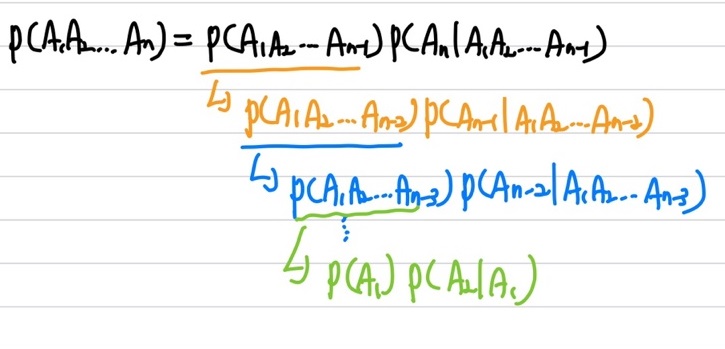 P(A₁A₂... Aₙ) = P(A₁A₂...Aₙ₋₁)P(Aₙ|A₁A₂...Aₙ₋₁)
↳ P(A₁A₂...Aₙ₋₂)P(Aₙ₋₁|A₁A₂...Aₙ₋₂)
↳ P(A₁A₂...Aₙ₋₃)P(Aₙ₋₂|A₁A₂...Aₙ₋₃)
⋮
↳ P(A₁)P(A₂|A₁)